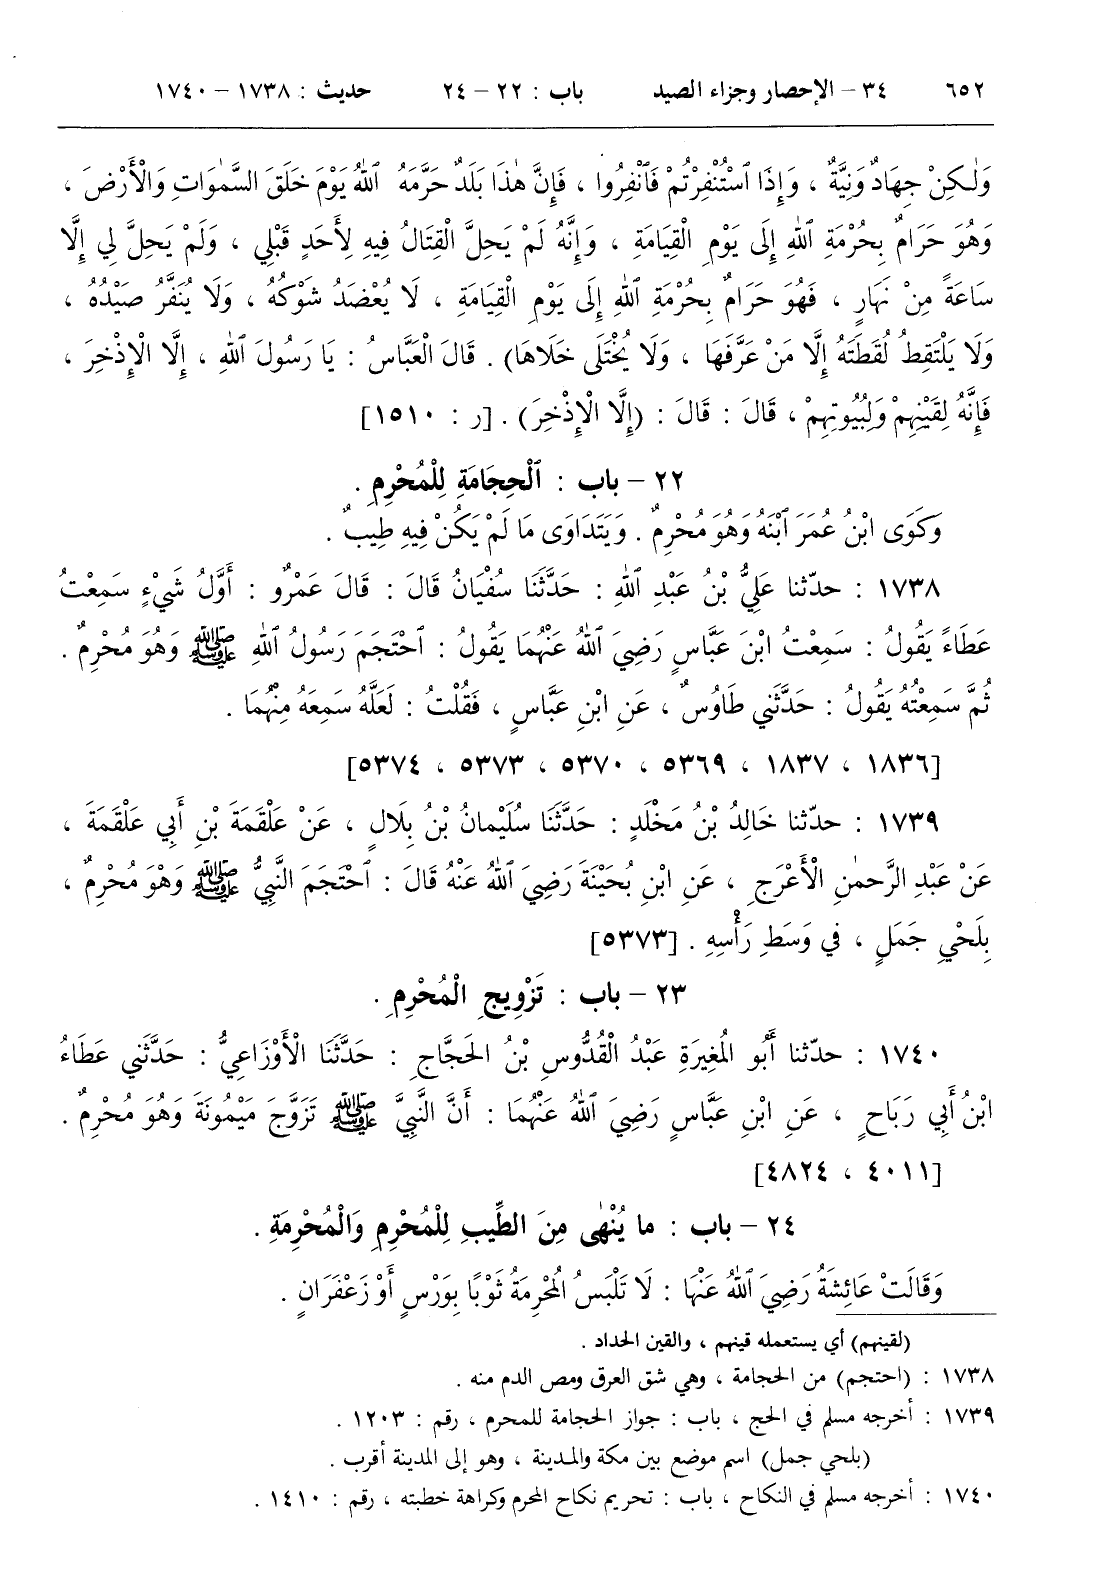 ٦٥٢ ٣٤ – الإحصار وجزاء الصيد باب : ٢٢ – ٢٤ حديث : ١٧٣٨ – ١٧٤٠
وَلٰكِنْ جِهَادٌ وَنِيَّةٌ ، وَإِذَا ٱسْتُنْفِرْتُمْ فَٱنْفِرُوا ، فَإِنَّ هٰذَا بَلَدٌ حَرَّمَهُ ٱللهُ يَوْمَ خَلَقَ السَّمٰوَاتِ وَالْأَرْضَ ،
وَهُوَ حَرَامٌ بِحُرْمَةِ ٱللهِ إِلَى يَوْمِ الْقِيَامَةِ ، وَإِنَّهُ لَمْ يَحِلَّ الْقِتَالُ فِيهِ لِأَحَدٍ قَبْلِي ، وَلَمْ يَحِلَّ لِي إِلَّا
سَاعَةً مِنْ نَهَارٍ ، فَهُوَ حَرَامٌ بِحُرْمَةِ ٱللهِ إِلَى يَوْمِ الْقِيَامَةِ ، لَا يُعْضَدُ شَوْكُهُ ، وَلَا يُنَفَّرُ صَيْدُهُ ،
وَلَا يَلْتَقِطُ لُقَطَتَهُ إِلَّا مَنْ عَرَّفَهَا ، وَلَا يُخْتَلَى خَلَاهَا) . قَالَ الْعَبَّاسُ : يَا رَسُولَ ٱللهِ ، إِلَّا الْإِذْخِرَ ،
فَإِنَّهُ لِقَيْنِهِمْ وَلِبُيُوتِهِمْ ، قَالَ : قَالَ : (إِلَّا الْإِذْخِرَ) . [ر : ١٥١٠]
٢٢ – باب : ٱلْحِجَامَةِ لِلْمُحْرِمِ .
وَكَوَى ابْنُ عُمَرَ ٱبْنَهُ وَهُوَ مُحْرِمٌ . وَيَتَدَاوَى مَا لَمْ يَكُنْ فِيهِ طِيبٌ .
١٧٣٨ : حدّثنا عَلِيُّ بْنُ عَبْدِ ٱللهِ : حَدَّثَنَا سُفْيَانُ قَالَ : قَالَ عَمْرٌو : أَوَّلُ شَيْءٍ سَمِعْتُ
عَطَاءً يَقُولُ : سَمِعْتُ ابْنَ عَبَّاسٍ رَضِيَ ٱللهُ عَنْهُمَا يَقُولُ : ٱحْتَجَمَ رَسُولُ ٱللهِ ﷺ وَهُوَ مُحْرِمٌ .
ثُمَّ سَمِعْتُهُ يَقُولُ : حَدَّثَنِي طَاوُسٌ ، عَنِ ابْنِ عَبَّاسٍ ، فَقُلْتُ : لَعَلَّهُ سَمِعَهُ مِنْهُمَا .
[١٨٣٦ ، ١٨٣٧ ، ٥٣٦٩ ، ٥٣٧٠ ، ٥٣٧٣ ، ٥٣٧٤]
١٧٣٩ : حدّثنا خَالِدُ بْنُ مَخْلَدٍ : حَدَّثَنَا سُلَيْمانُ بْنُ بِلَالٍ ، عَنْ عَلْقَمَةَ بْنِ أَبِي عَلْقَمَةَ ،
عَنْ عَبْدِ الرَّحمٰنِ الْأَعْرَجِ ، عَنِ ابْنِ بُحَيْنَةَ رَضِيَ ٱللهُ عَنْهُ قَالَ : ٱحْتَجَمَ النَّبِيُّ ﷺ وَهْوَ مُحْرِمٌ ،
بِلَحْيِ جَمَلٍ ، في وَسَطِ رَأْسِهِ . [٥٣٧٣]
٢٣ – باب : تَزْوِيجِ الْمُحْرِمِ .
١٧٤٠ : حدّثنا أَبُو المُغِيرَةِ عَبْدُ الْقُدُّوسِ بْنُ الحَجَّاجِ : حَدَّثَنَا الْأَوْزَاعِيُّ : حَدَّثَنِي عَطَاءُ
ابْنُ أَبِي رَبَاحٍ ، عَنِ ابْنِ عَبَّاسٍ رَضِيَ ٱللهُ عَنْهُمَا : أَنَّ النَّبِيَّ ﷺ تَزَوَّجَ مَيْمُونَةَ وَهُوَ مُحْرِمٌ .
[٤٠١١ ، ٤٨٢٤]
٢٤ – باب : ما يُنْهٰى مِنَ الطِّيبِ لِلْمُحْرِمِ وَالْمُحْرِمَةِ .
وَقَالَتْ عَائِشَةُ رَضِيَ ٱللهُ عَنْهَا : لَا تَلْبَسُ المُحْرِمَةُ ثَوْبًا بِوَرْسٍ أَوْ زَعْفَرَانٍ .
(لقينهم) أي يستعمله قينهم ، والقين الحداد .
١٧٣٨ : (احتجم) من الحجامة ، وهي شق العرق ومص الدم منه .
١٧٣٩ : أخرجه مسلم في الحج ، باب : جواز الحجامة للمحرم ، رقم : ١٢٠٣ .
(بلحي جمل) اسم موضع بين مكة والمدينة ، وهو إلى المدينة أقرب .
١٧٤٠ : أخرجه مسلم في النكاح ، باب : تحريم نكاح المحرم وكراهة خطبته ، رقم : ١٤١٠ .